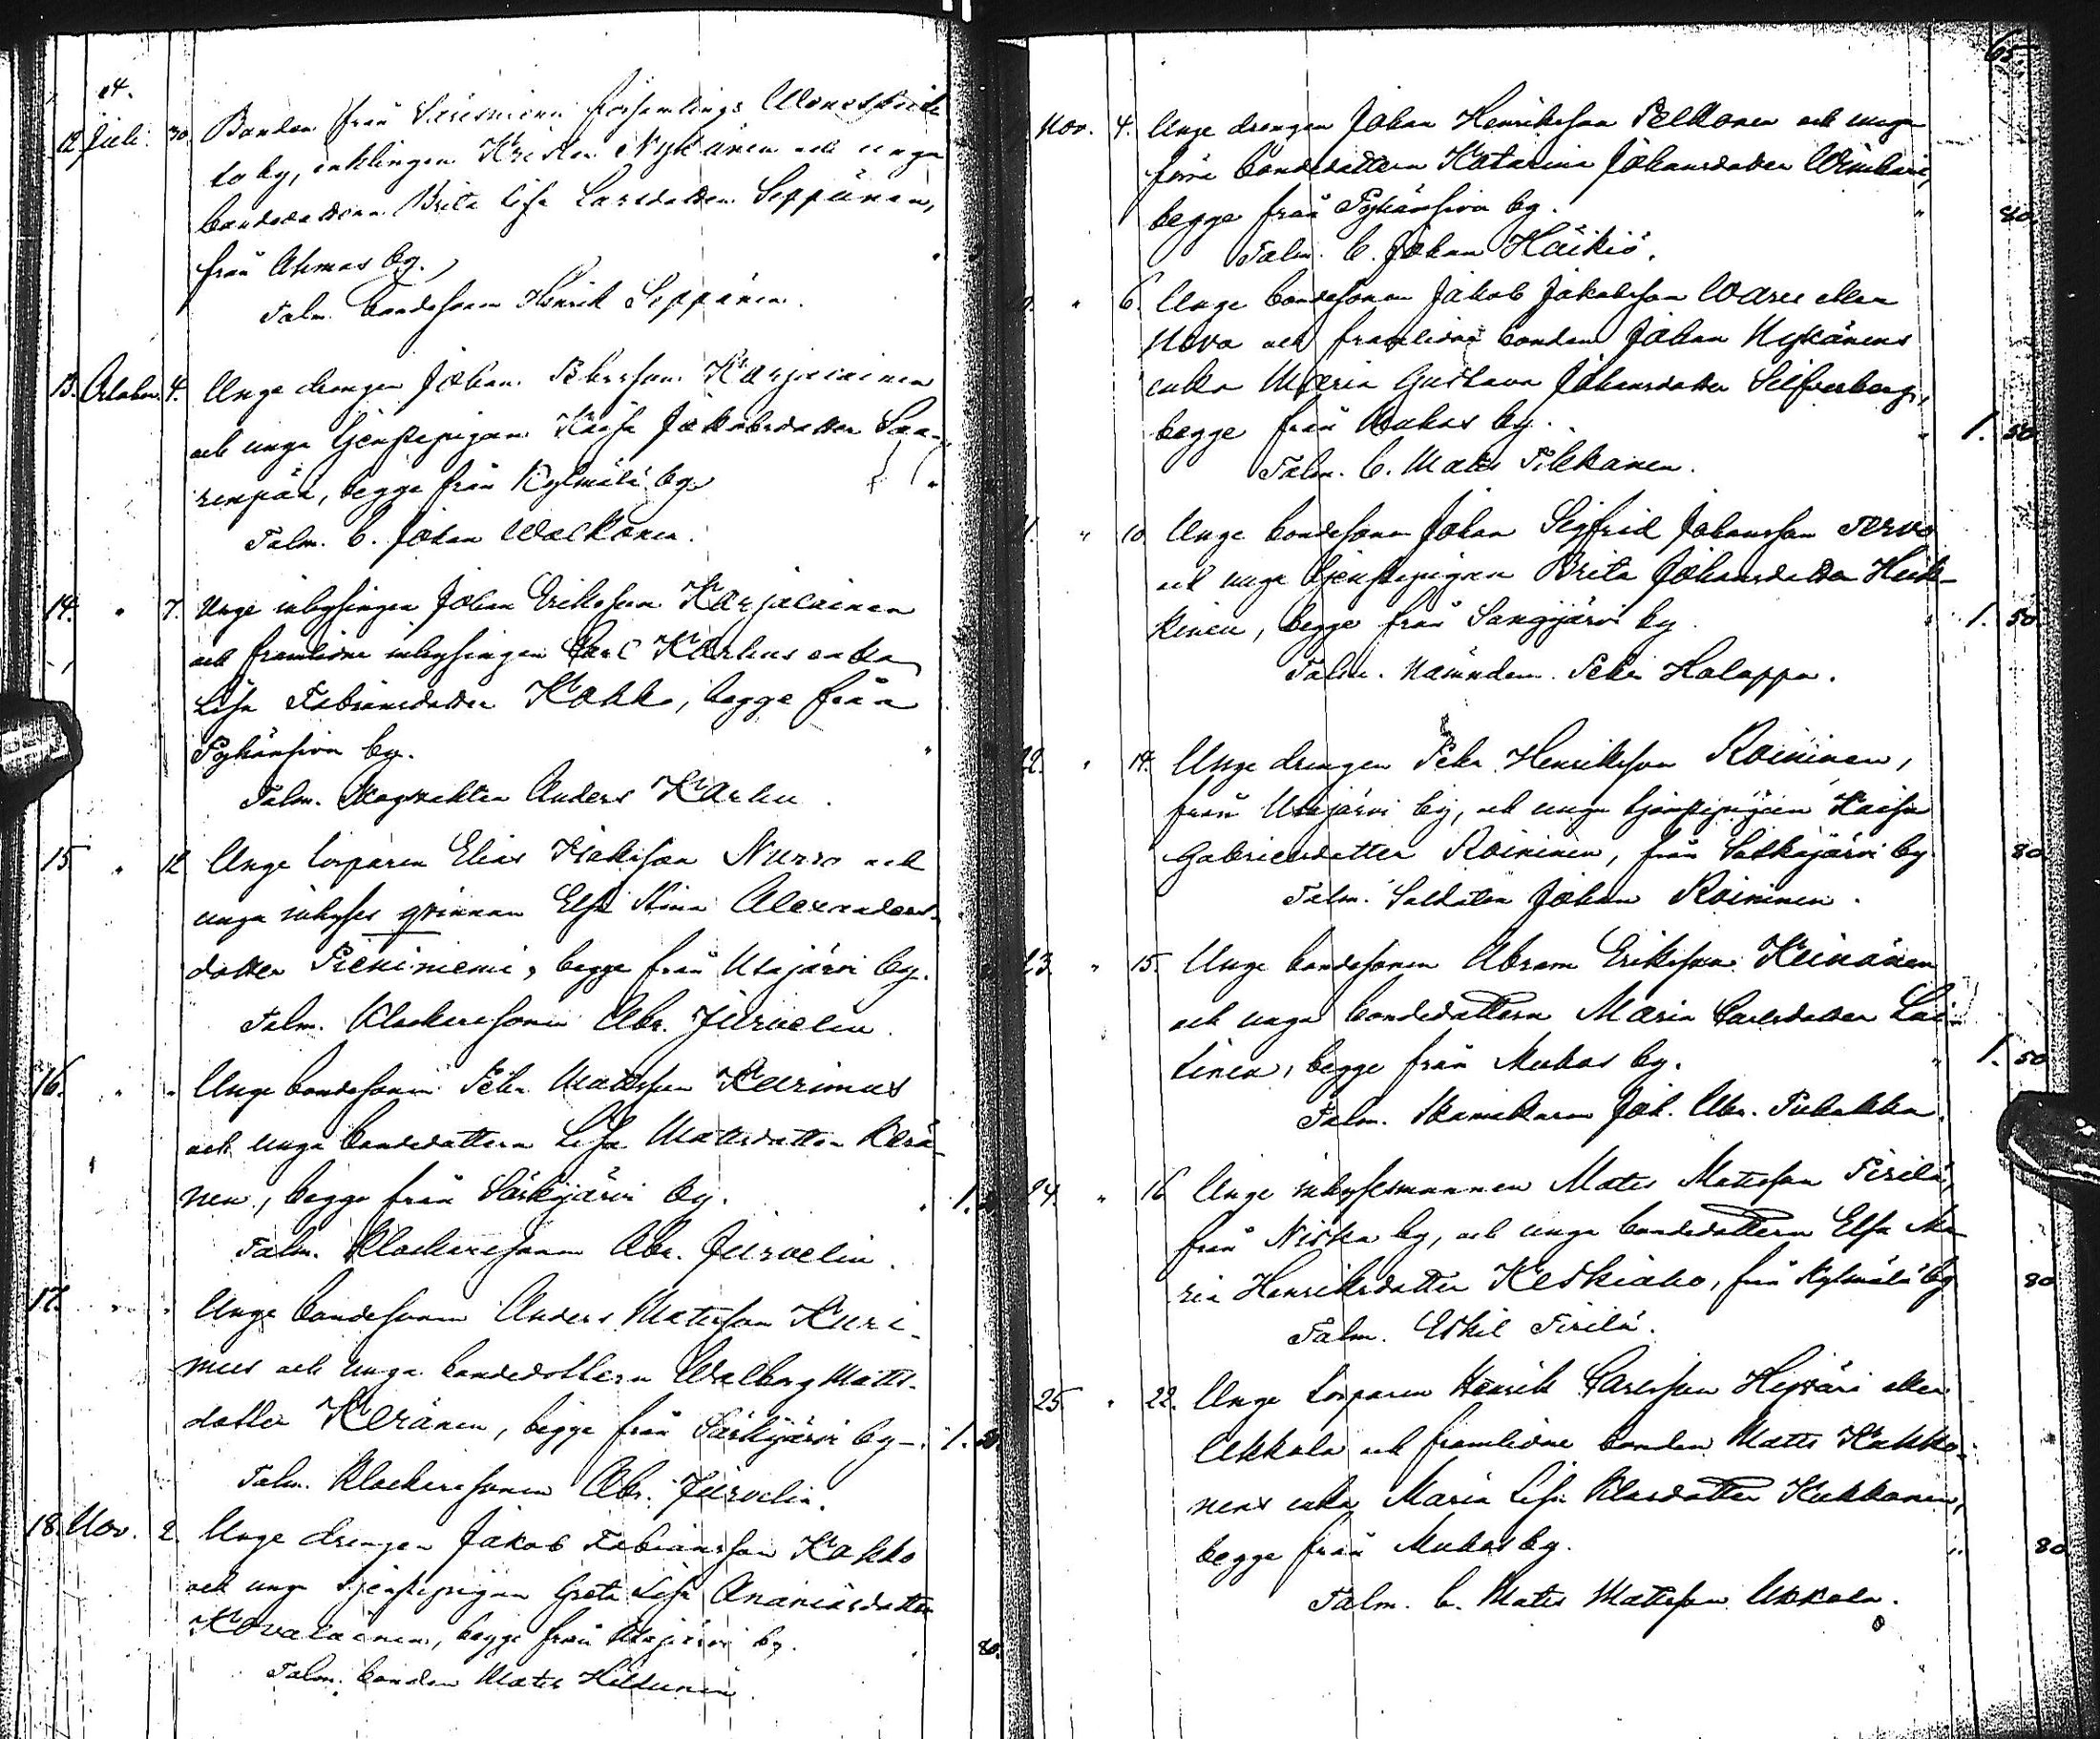 65.
12 Juli 30. Bonden från Säresniemi församlings
by, enklingen Krister Nykänen och unga
bondedottern Brita Lisa Larsdotter Seppänen,
från Ahmas by.
Talm. bondesonen Henrik Seppänen.
13. October 4. Unge drengen Johan Karjalainen
och unga tjenstepigan Kaisa Jakobsdotter Saa-
renpää, begge från Kylmälä by
Talm. b. Johan Walkonen.
14. " 7. Unge inhysingen Johan Eriksson Karjalainen
och framlidne inhysingen Carl Karhus enka
Lisa Fabiansdotter Kokko, begge från
Pyhänsivu by.
Talm. Skogvakten Anders Karhu.
15 " 12 Unge torparen Elias Isaksson Nurro och
unga inhyses qvinnan Elsa Stina Alexanders-
dotter Pieniniemi, begge från Utajärvi by.
Talm. Klockaresonen Abr. Jurvelin.
16. " " Unge bondesonen Pehr Mattsson Kurimus
och unga bondedottern Lisa Mattsdotter Kerä-
nen, begge från Särkijärvi by. " 1.
Talm. Klockaresonen Abr. Jurvelin.
17. " " Unge bondesonen Anders Mattsson Kuri-
mus och unga bondedottern Walborg Matts-
dotter Keränen, begge från Särkijärvi by. 1. 50.
Talm. Klockaresonen Abr. Jurvelin.
18. Nov. 2. Unge drengen Jakob Fabiansson Kokko
och unga tjenstepigan Greta Lisa Ananiasdotter
Kovalainen, begge från Utajärvi by. 80.
Talm. bonden Matts Hiltunen.
Nov. 4. Unge drengen Johan Henriksson Pelkonen och unga
förra bondedottern Katarina Johansdotter Wimpari,
begge från Pyhänsivu by. " 80
Talm. b. Johan Häikiö.
" 6. Unge bondesonen Jakob Jakobsson Ware eller
Nova och framlidne bonden Johan Nykänens
enka Maria Gustava Johansdotter Silfverberg,
begge från Muhos by. " 1. 50
Talm. b. Matts Pikkanen.
" 10. Unge bondesonen Johan Sigfrid Johansson Tervo
och unga tjenstepigan Brita Johansdotter Heik-
kinen, begge från Sangijärvi by " 1. 50.
Talm. Nämndem. Pehr Holappa.
22. " 14. Unge drengen Pehr Henriksson Roininen,
från Utajärvi by, och unga tjenstepigan Kaisa
Gabrielsdotter Roininen, från Sotkajärvi by 80
Talm. Soldaten Johan Roininen.
23. " 15. Unge bondesonen Abram Eriksson Keinänen
och unga bondedottern Maria Carlsdotter Lai-
tinen, begge från Muhos by. " 1. 50
Talm. Skomakaren Joh. Abr. Pukakka.
24. " 16 Unge inhysesmannen Matts Mattsson Tirilä,
från Niska by, och unga bondedottern Elsa Ma-
ria Henriksdotter Keskiaho, från Kylmälä by 80
Talm. Eskil Tirilä.
25 " 22. Unge torparen Henrik Carlsson Hyväri eller
Ukkola och framlidne bonden Matts Kukko-
nens enka Maria Lisa Klasdotter Kukkonen,
begge från Muhos by. " 80
Talm. b. Matts Mattsson Ukkola.